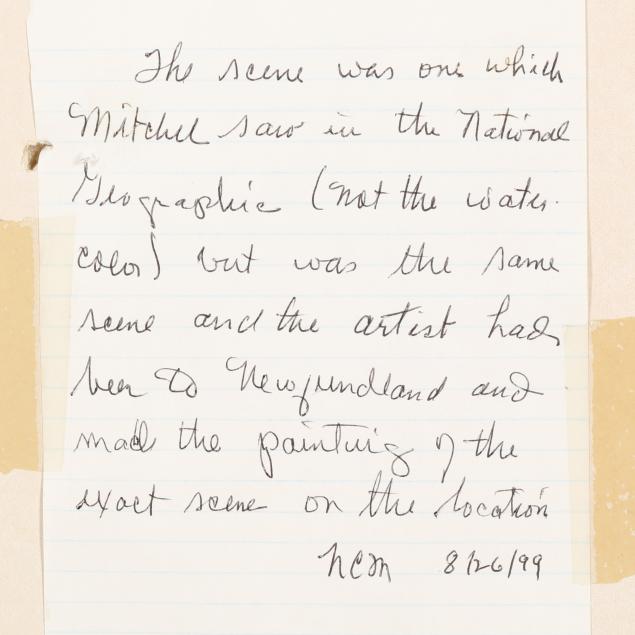 The scene was one which
Mitchel saw in the National
Geographic (not the water-
color) but was the same
scene and the artist had
been to Newfundland and
made the painting of the
exact scene on the location
NCM 8/26/99